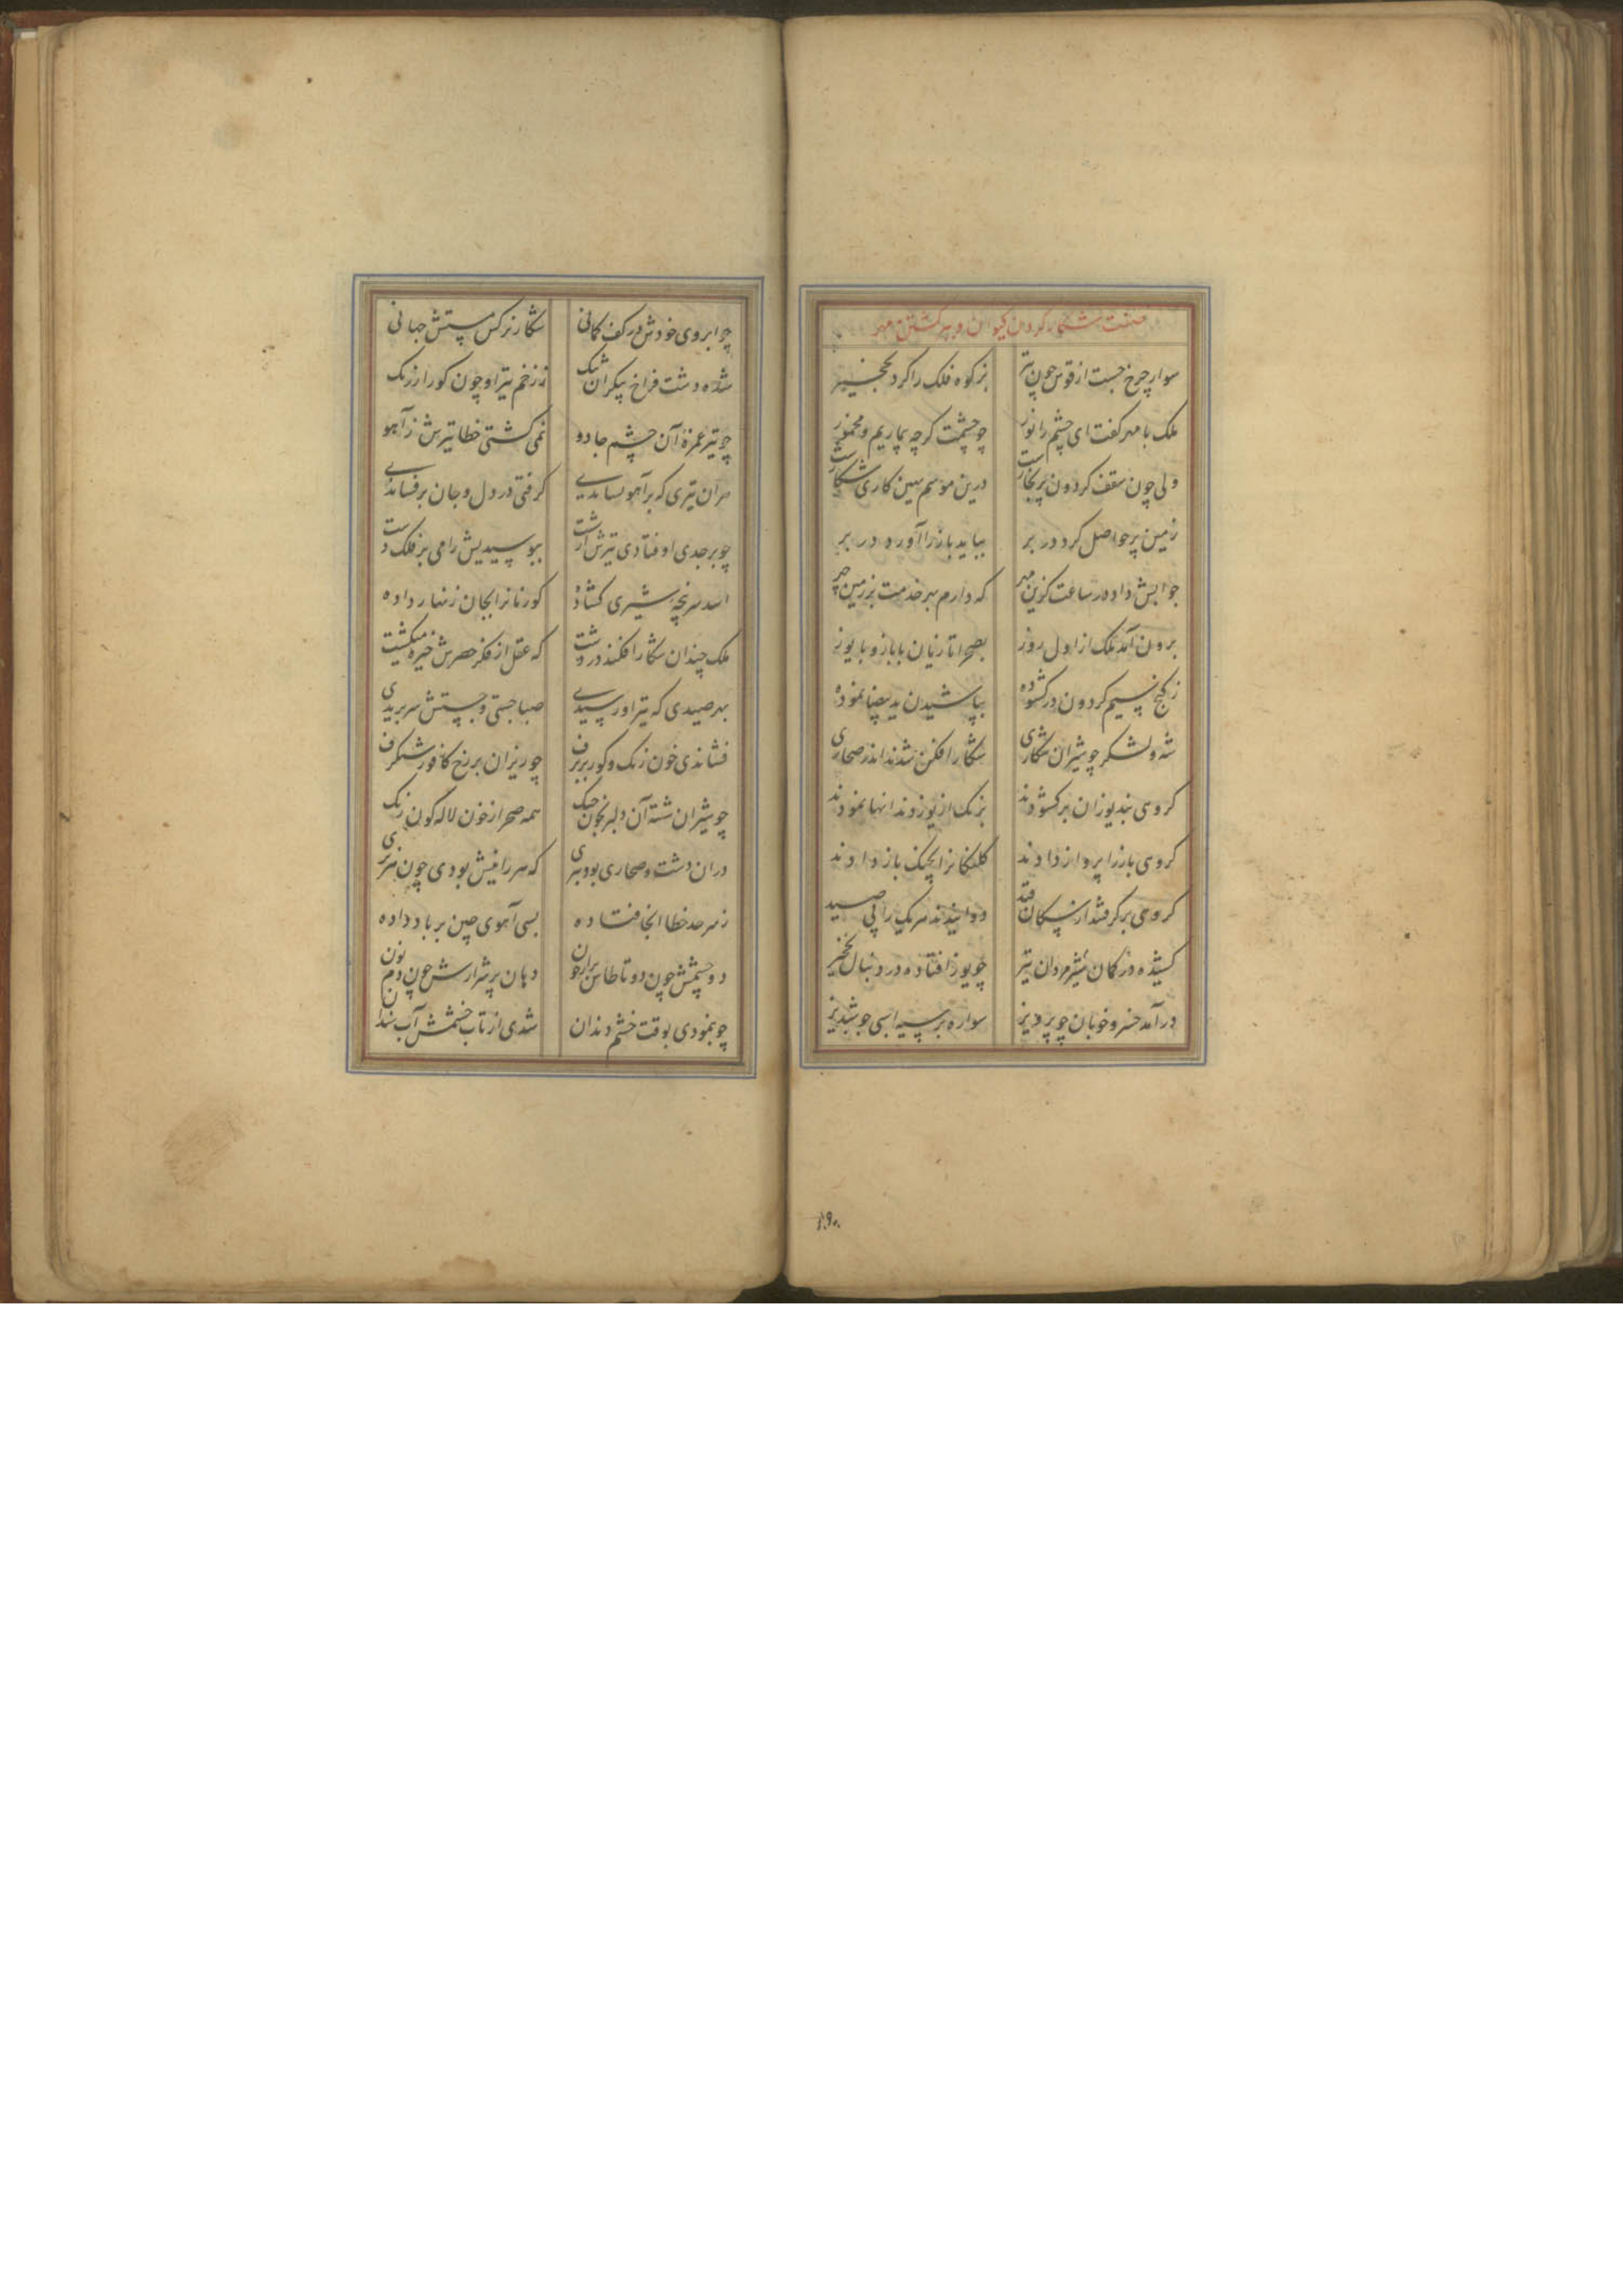 صفت شکار کردن کیوان و ببر کشتن مهر
سوار چرخ جست از قوس چون تیر بز کوه فلک را کرد نخجیر
ملک با مهر کفت ای چشم را نور چو چشمت کرچه بیماریم و مخمور
ولی چون سقف کردون پر بخارست درین موسم همین کاری شکارست
زمین پر حواصل کرد در بر بباید باز را آورد در بر
جوابش داد در ساعت کزین مهر که دارم بهر خدمت بر زمین چهر
برون آمد ملک از اول روز بصحرا تازیان با باز و با یوز
ز کنج سیم کردون در کشوده بپاشیدن ید بیضا نموده
شه و لشکر چو شیران شکاری شکار افکن شدند اندر صحاری
کروهی بند یوزان برکشودند بزنک از یوز وندانها نمودند
کروهی باز را پرواز دادند کلنکانرا بچنک باز دادند
کروهی برکرفتند از سکان قید دوانیدند هر یک را پی صید
کشیده در کمان شیر مردان تیر چو یوز افتاده در دنبال نخجیر
درآمد خسرو خوبان چو پرویز سواره بر سیه اسبی چو شبدیز
۱۹۰
چو ابروی خودش در کف کمانی شکار نرکس مستش جهانی
شده دشت فراخ بیکران تنک ز زخم تیر او چون کور ارزنک
چو تیر غمزهٔ آن چشم جادو نمی کشتی خطا تیرش ز آهو
هران تیری که بر آهو کشاندی کرفتی در دل و جان برفشاندی
چو بر جدی اوفتادی تیرش از شست ببوسیدیش رامی بر فلک دست
اسد سر پنجهٔ شیری کشاده کورنانرا بجان زنهار داده
ملک چندان شکار افکند در دشت که عقل از فکر حصرش خیره میکشت
بهر صیدی که تیر او رسیدی صبا جستی و جستش سر بریدی
فشاندی خون رنک و کور بر برف چو ریزان بر رخ کافور شنکرف
چو شیران شسته آن دلبر بخون چنک همه صحرا ز خون لاله کون رنک
دران دشت و صحاری بود ببری که سر را فیش بودی چون هزبری
ز سرحد خطا آنجا فتاده بسی آهوی چین بر باد داده
دو چشمش چون دو تا طاس پر از خون دهان پر شرارش چون دم نون
چو بنمودی بوقت خشم دندان شدی از تاب خشمش آب سندان